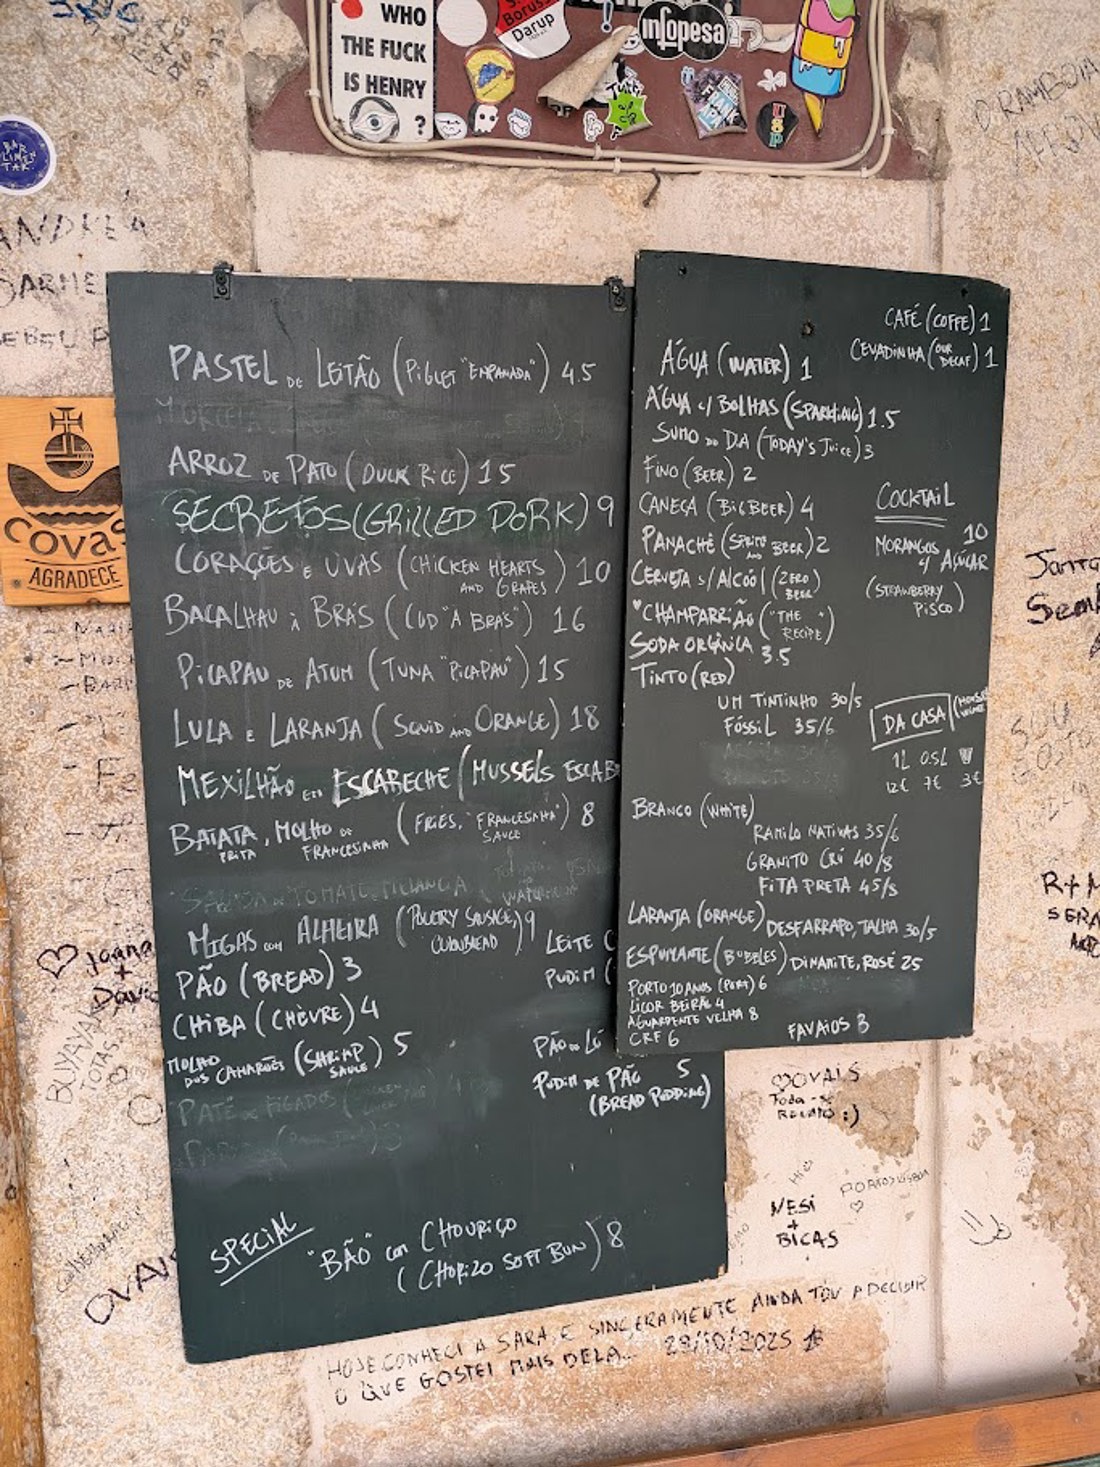 WHO
THE FUCK
IS HENRY
?
Borussia
Darup
infopesa
BAR
LIMEN
TAR.
ANDREA
D. RAMBOIA
COVAS
AGRADECE
PASTEL DE LEITÃO (PIGLET "EMPANADA") 4.5
ARROZ DE PATO (DUCK RICE) 15
SECRETOS (GRILLED PORK) 9
CORAÇÕES E UVAS (CHICKEN HEARTS AND GRAPES) 10
BACALHAU À BRÁS (COD "A BRÁS") 16
PICAPAU DE ATUM (TUNA "PICAPAU") 15
LULA E LARANJA (SQUID AND ORANGE) 18
MEXILHÃO EM ESCABECHE (MUSSELS ESCAB
BATATA FRITA, MOLHO DE FRANCESINHA (FRIES, "FRANCESINHA" SAUCE) 8
SALADA DE TOMATE, MELANCIA
MIGAS COM ALHEIRA (POULTRY SAUSAGE, CORNBREAD) 9
PÃO (BREAD) 3
CHIBA (CHÈVRE) 4
MOLHO DOS CAMARÕES (SHRIMP SAUCE) 5
PATÉ DE FIGADOS
LEITE C
PUDIM (
PÃO DE LÓ
PUDIM DE PÃO 5
(BREAD PUDDING)
SPECIAL
"BÃO" COM CHOURIÇO
(CHORIZO SOFT BUN) 8
CAFÉ (COFFE) 1
CEVADINHA (OUR DECAF) 1
ÁGUA (WATER) 1
ÁGUA C/ BOLHAS (SPARKLING) 1.5
SUMO DO DIA (TODAY'S JUICE) 3
FINO (BEER) 2
CANECA (BIG BEER) 4
PANACHÉ (SPRITE AND BEER) 2
CERVEJA S/ ALCOOL (ZERO BEER)
CHAMPARRIÃO ("THE RECIPE")
SODA ORGÂNICA 3.5
TINTO (RED)
UM TINTINHO 30/5
FÓSSIL 35/6
COCKTAIL
10
MORANGOS
C/ AÇUCAR
(STRAWBERRY
PISCO)
DA CASA
1L 0.5L
12€ 7€ 3€
BRANCO (WHITE)
RAMILO NATIVAS 35/6
GRANITO CRÚ 40/8
FITA PRETA 45/8
LARANJA (ORANGE) DESFARRAPO, TALHA 30/5
ESPUMANTE (BUBBLES) DINAMITE, ROSÉ 25
PORTO 10 ANOS (PORT) 6
LICOR BEIRÃO 4
AGUARDENTE VELHA 8
CRF 6
FAVAIOS 3
Joana
+
David
R+M
OVAIS
NESI
+
BICAS
HOJE CONHECI A SARA, E SINCERAMENTE AINDA TOU A DECIDIR
O QUE GOSTEI MAIS DELA... 29/10/2025